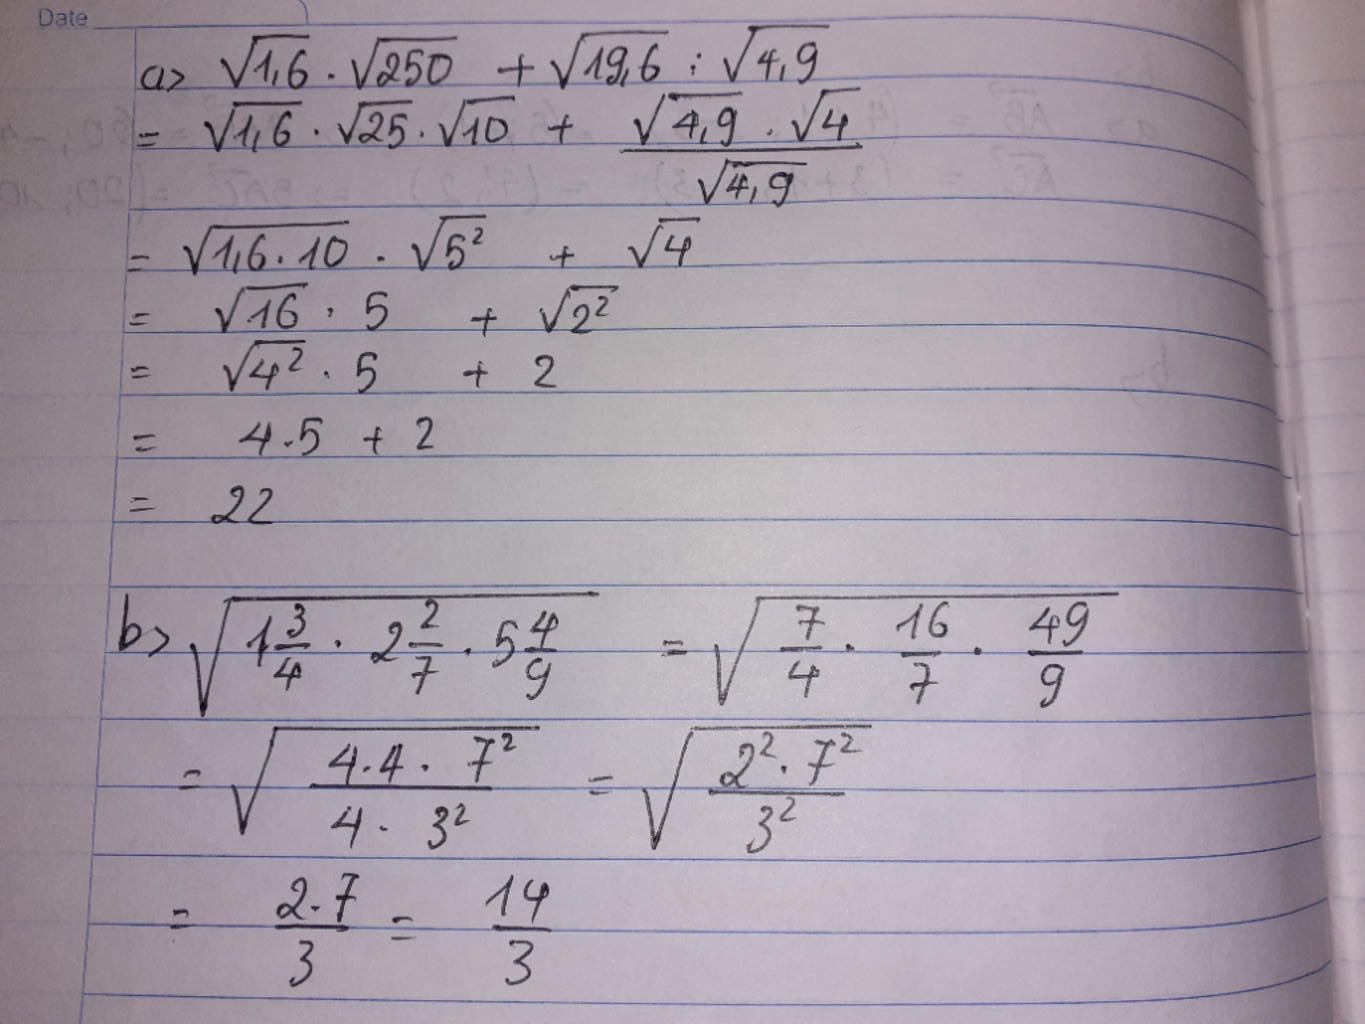 Date
a> √1,6 . √250 + √19,6 : √4,9
= √1,6 . √25 . √10 + (√4,9 . √4)/√4,9
= √(1,6 . 10) . √5² + √4
= √16 . 5 + √2²
= √4² . 5 + 2
= 4.5 + 2
= 22
b> √(1 3/4 . 2 2/7 . 5 4/9) = √(7/4 . 16/7 . 49/9)
= √((4.4 . 7²)/(4 . 3²)) = √((2² . 7²)/3²)
= (2.7)/3 = 14/3